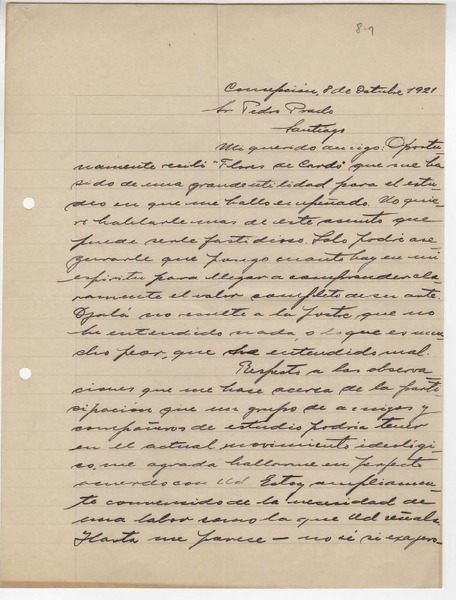 8-9
Concepción, 8 de Octubre 1921
Sr Pedro Prado
Santiago
Mi querido amigo: Oportu-
namente recibí "Flores de Cardo" que me ha
sido de una grande utilidad para el estu-
dio en que me hallo empeñado. No quie-
ro hablarle mas de este asunto que
puede serle fastidioso. Solo podré ase-
gurarle que pongo cuanto hay en mi
espíritu para llegar a comprender cla-
ramente el valor completo de su arte.
Ojalá no resulte a la postre, que no
he entendido nada, o lo que es mu-
cho peor, que he entendido mal.
Respecto a las observa
ciones que me hace acerca de la parti-
cipacion que un grupo de amigos y
compañeros de estudio podria tener
en el actual movimiento ideológi-
co, me agrada hallarme en perfecto
acuerdo con Ud. Estoy ampliamen-
te convencido de la necesidad de
una labor como la que Ud señala.
Hasta me parece — no sé si exajero-